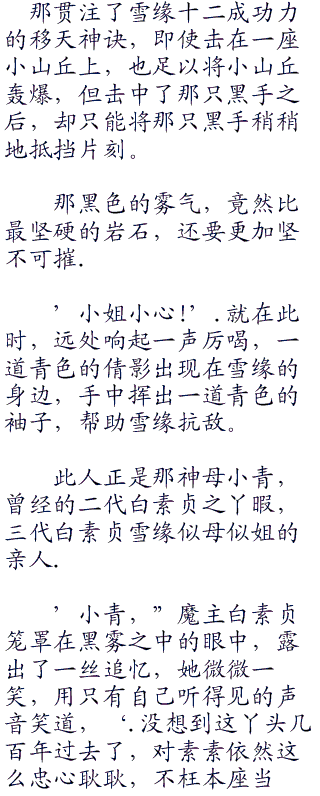 那贯注了雪缘十二成功力
的移天神诀，即使击在一座
小山丘上，也足以将小山丘
轰爆，但击中了那只黑手之
后，却只能将那只黑手稍稍
地抵挡片刻。
那黑色的雾气，竟然比
最坚硬的岩石，还要更加坚
不可摧.
’小姐小心!’.就在此
时，远处响起一声厉喝，一
道青色的倩影出现在雪缘的
身边，手中挥出一道青色的
袖子，帮助雪缘抗敌。
此人正是那神母小青，
曾经的二代白素贞之丫暇，
三代白素贞雪缘似母似姐的
亲人.
’小青，”魔主白素贞
笼罩在黑雾之中的眼中，露
出了一丝追忆，她微微一
笑，用只有自己听得见的声
音笑道，‘.没想到这丫头几
百年过去了，对素素依然这
么忠心耿耿，不枉本座当